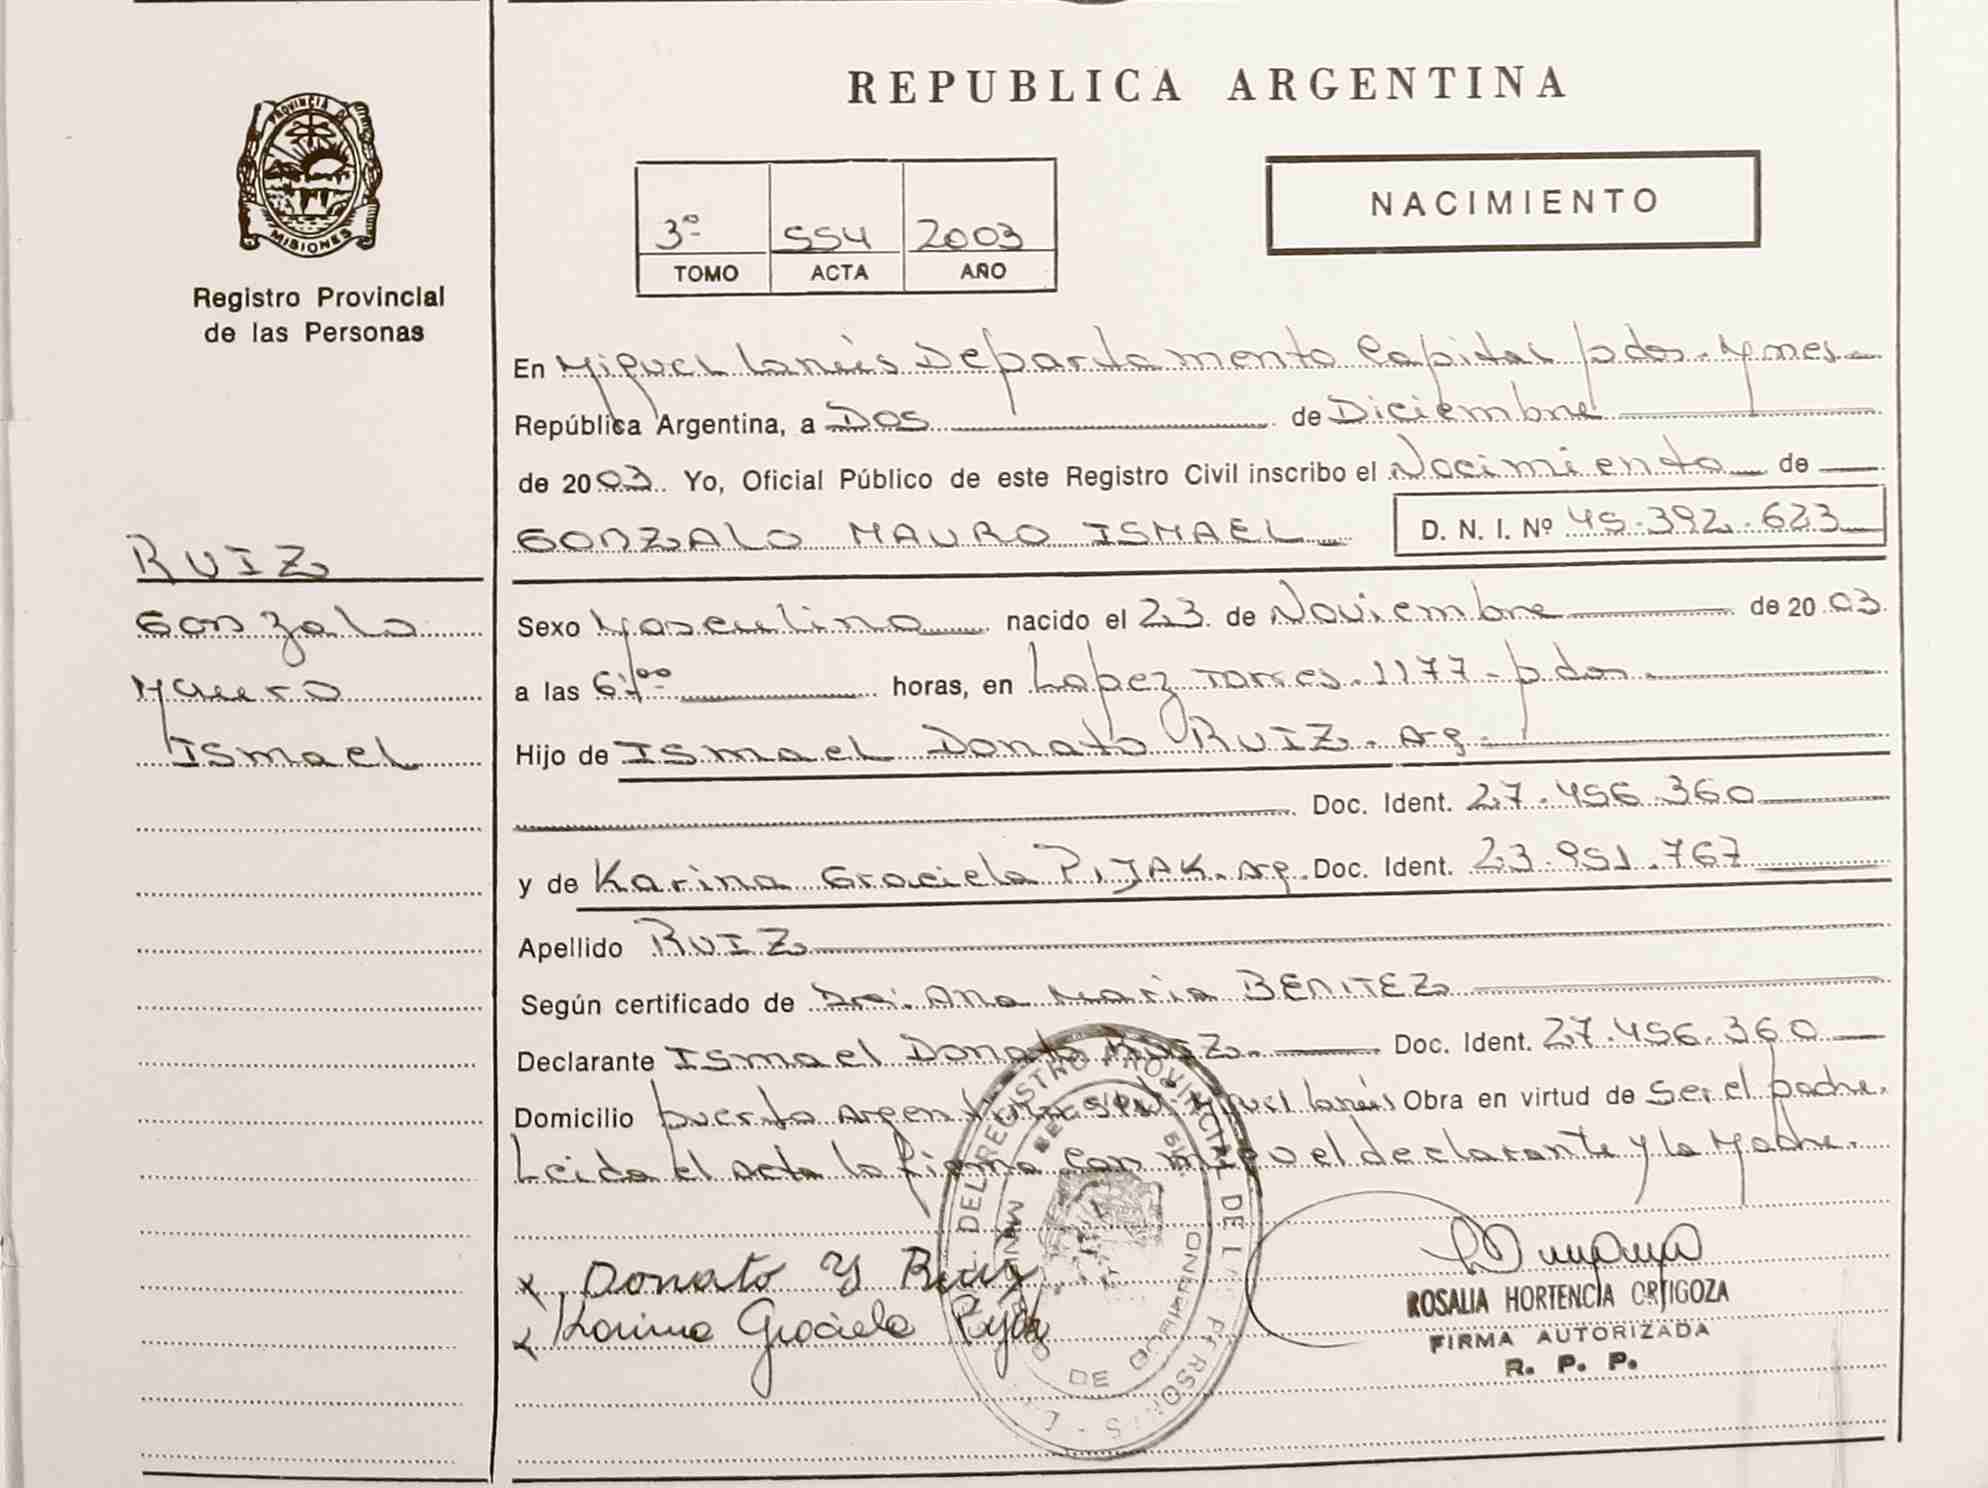 REPUBLICA ARGENTINA
PROVINCIA DE
MISIONES
Registro Provincial
de las Personas
3º 554 2003
TOMO ACTA AÑO
NACIMIENTO
En Miguel Lanús Departamento Capital pdas. Mnes
República Argentina, a Dos de Diciembre
de 2003. Yo, Oficial Público de este Registro Civil inscribo el Nacimiento de
GONZALO MAURO ISMAEL D. N. I. Nº 45.392.623
RUIZ
Gonzalo
Mauro
Ismael
Sexo Masculino nacido el 23 de Noviembre de 2003
a las horas, en Lopez Torres. 1177 - pdas.
Hijo de Ismael Donato RUIZ. Arg.
Doc. Ident. 27.456.360
y de Karina Graciela PIJAK. Arg. Doc. Ident. 23.951.767
Apellido RUIZ
Según certificado de Dra. Ana Maria BENITEZ
Declarante Ismael Donato RUIZ. Doc. Ident. 27.456.360
Domicilio puerto Argentino Miguel Lanús Obra en virtud de Ser el padre.
Leida el Acta la firma con migo el declarante y la Madre.
x Donato Y Ruiz
x Karina Graciela Pijak
DEL REGISTRO PROVINCIAL DE
DE
ROSALIA HORTENCIA ORTIGOZA
FIRMA AUTORIZADA
R. P. P.